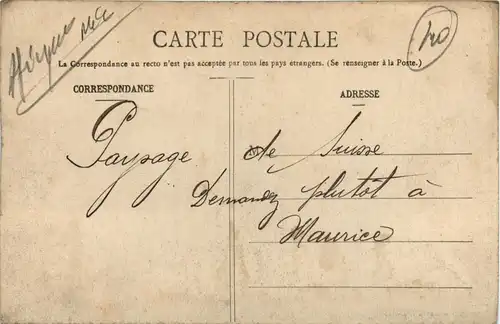 CARTE POSTALE
La Correspondance au recto n'est pas acceptée par tous les pays etrangers. (Se renseigner à la Poste.)
CORRESPONDANCE
ADRESSE
Paysage de Suisse
Demandez plutot à
Maurice